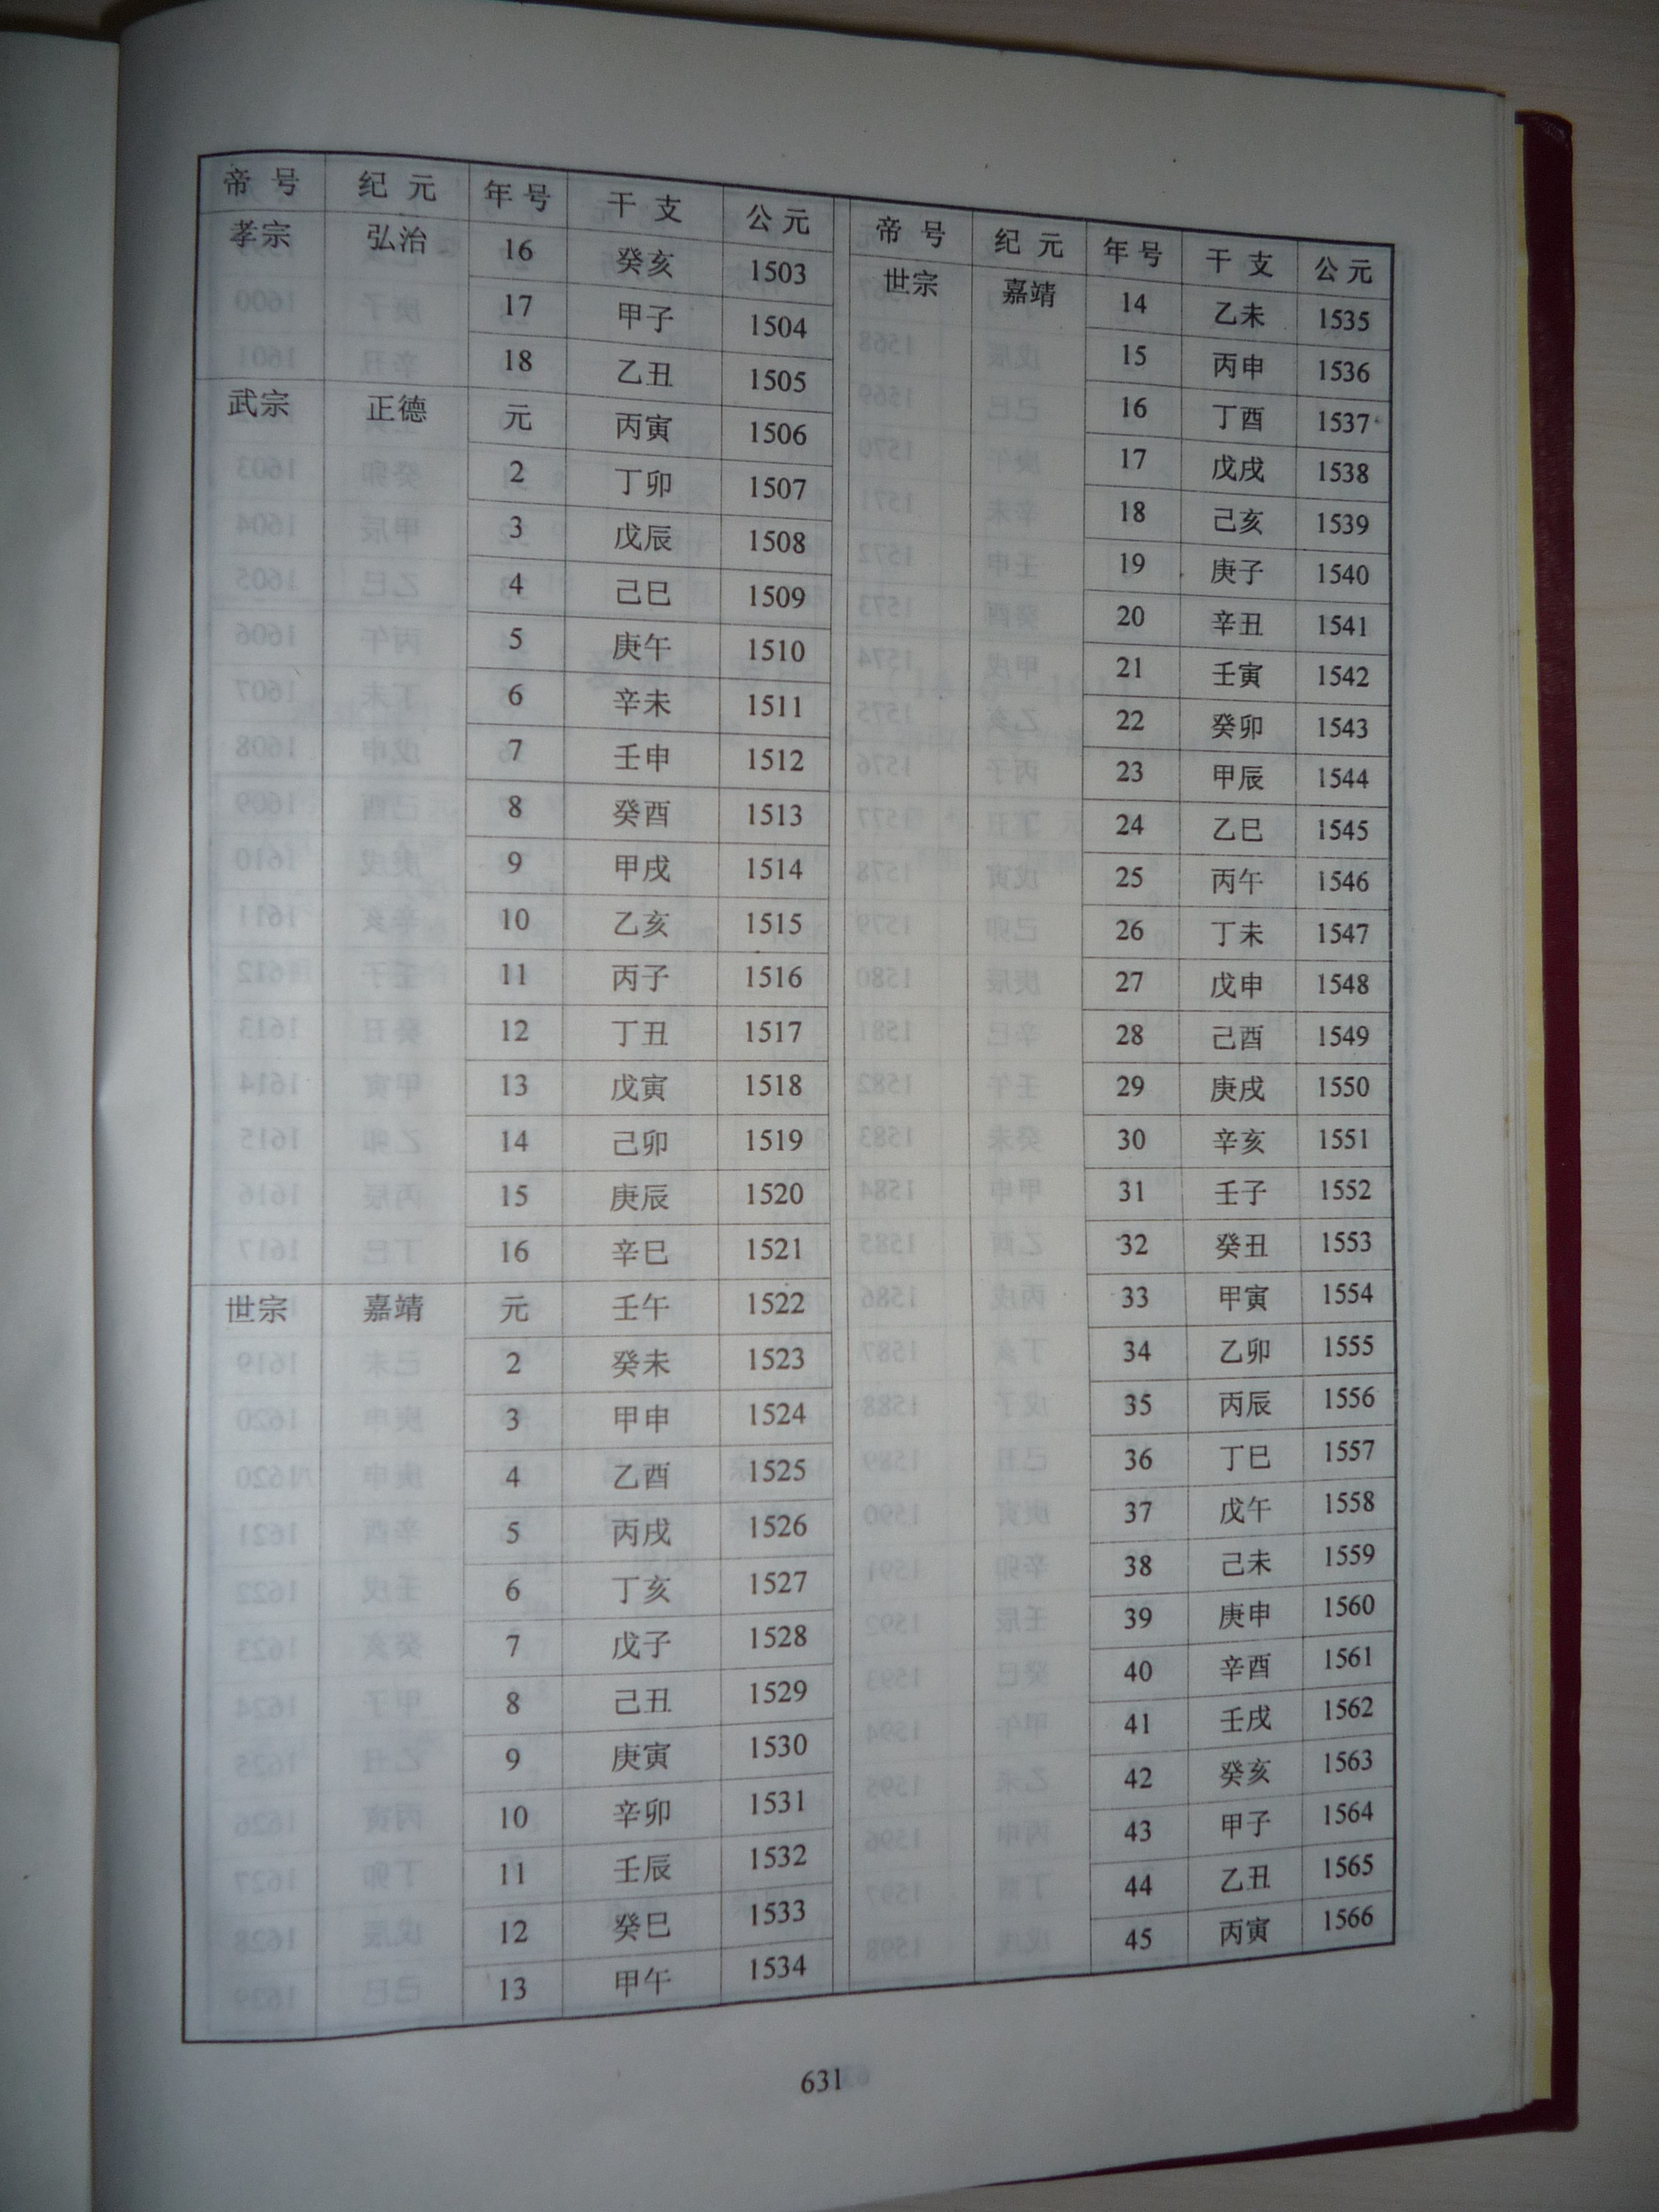 帝号 纪元 年号 干支 公元
孝宗 弘治 16 癸亥 1503
17 甲子 1504
18 乙丑 1505
武宗 正德 元 丙寅 1506
2 丁卯 1507
3 戊辰 1508
4 己巳 1509
5 庚午 1510
6 辛未 1511
7 壬申 1512
8 癸酉 1513
9 甲戌 1514
10 乙亥 1515
11 丙子 1516
12 丁丑 1517
13 戊寅 1518
14 己卯 1519
15 庚辰 1520
16 辛巳 1521
世宗 嘉靖 元 壬午 1522
2 癸未 1523
3 甲申 1524
4 乙酉 1525
5 丙戌 1526
6 丁亥 1527
7 戊子 1528
8 己丑 1529
9 庚寅 1530
10 辛卯 1531
11 壬辰 1532
12 癸巳 1533
13 甲午 1534
帝号 纪元 年号 干支 公元
世宗 嘉靖 14 乙未 1535
15 丙申 1536
16 丁酉 1537
17 戊戌 1538
18 己亥 1539
19 庚子 1540
20 辛丑 1541
21 壬寅 1542
22 癸卯 1543
23 甲辰 1544
24 乙巳 1545
25 丙午 1546
26 丁未 1547
27 戊申 1548
28 己酉 1549
29 庚戌 1550
30 辛亥 1551
31 壬子 1552
32 癸丑 1553
33 甲寅 1554
34 乙卯 1555
35 丙辰 1556
36 丁巳 1557
37 戊午 1558
38 己未 1559
39 庚申 1560
40 辛酉 1561
41 壬戌 1562
42 癸亥 1563
43 甲子 1564
44 乙丑 1565
45 丙寅 1566
631